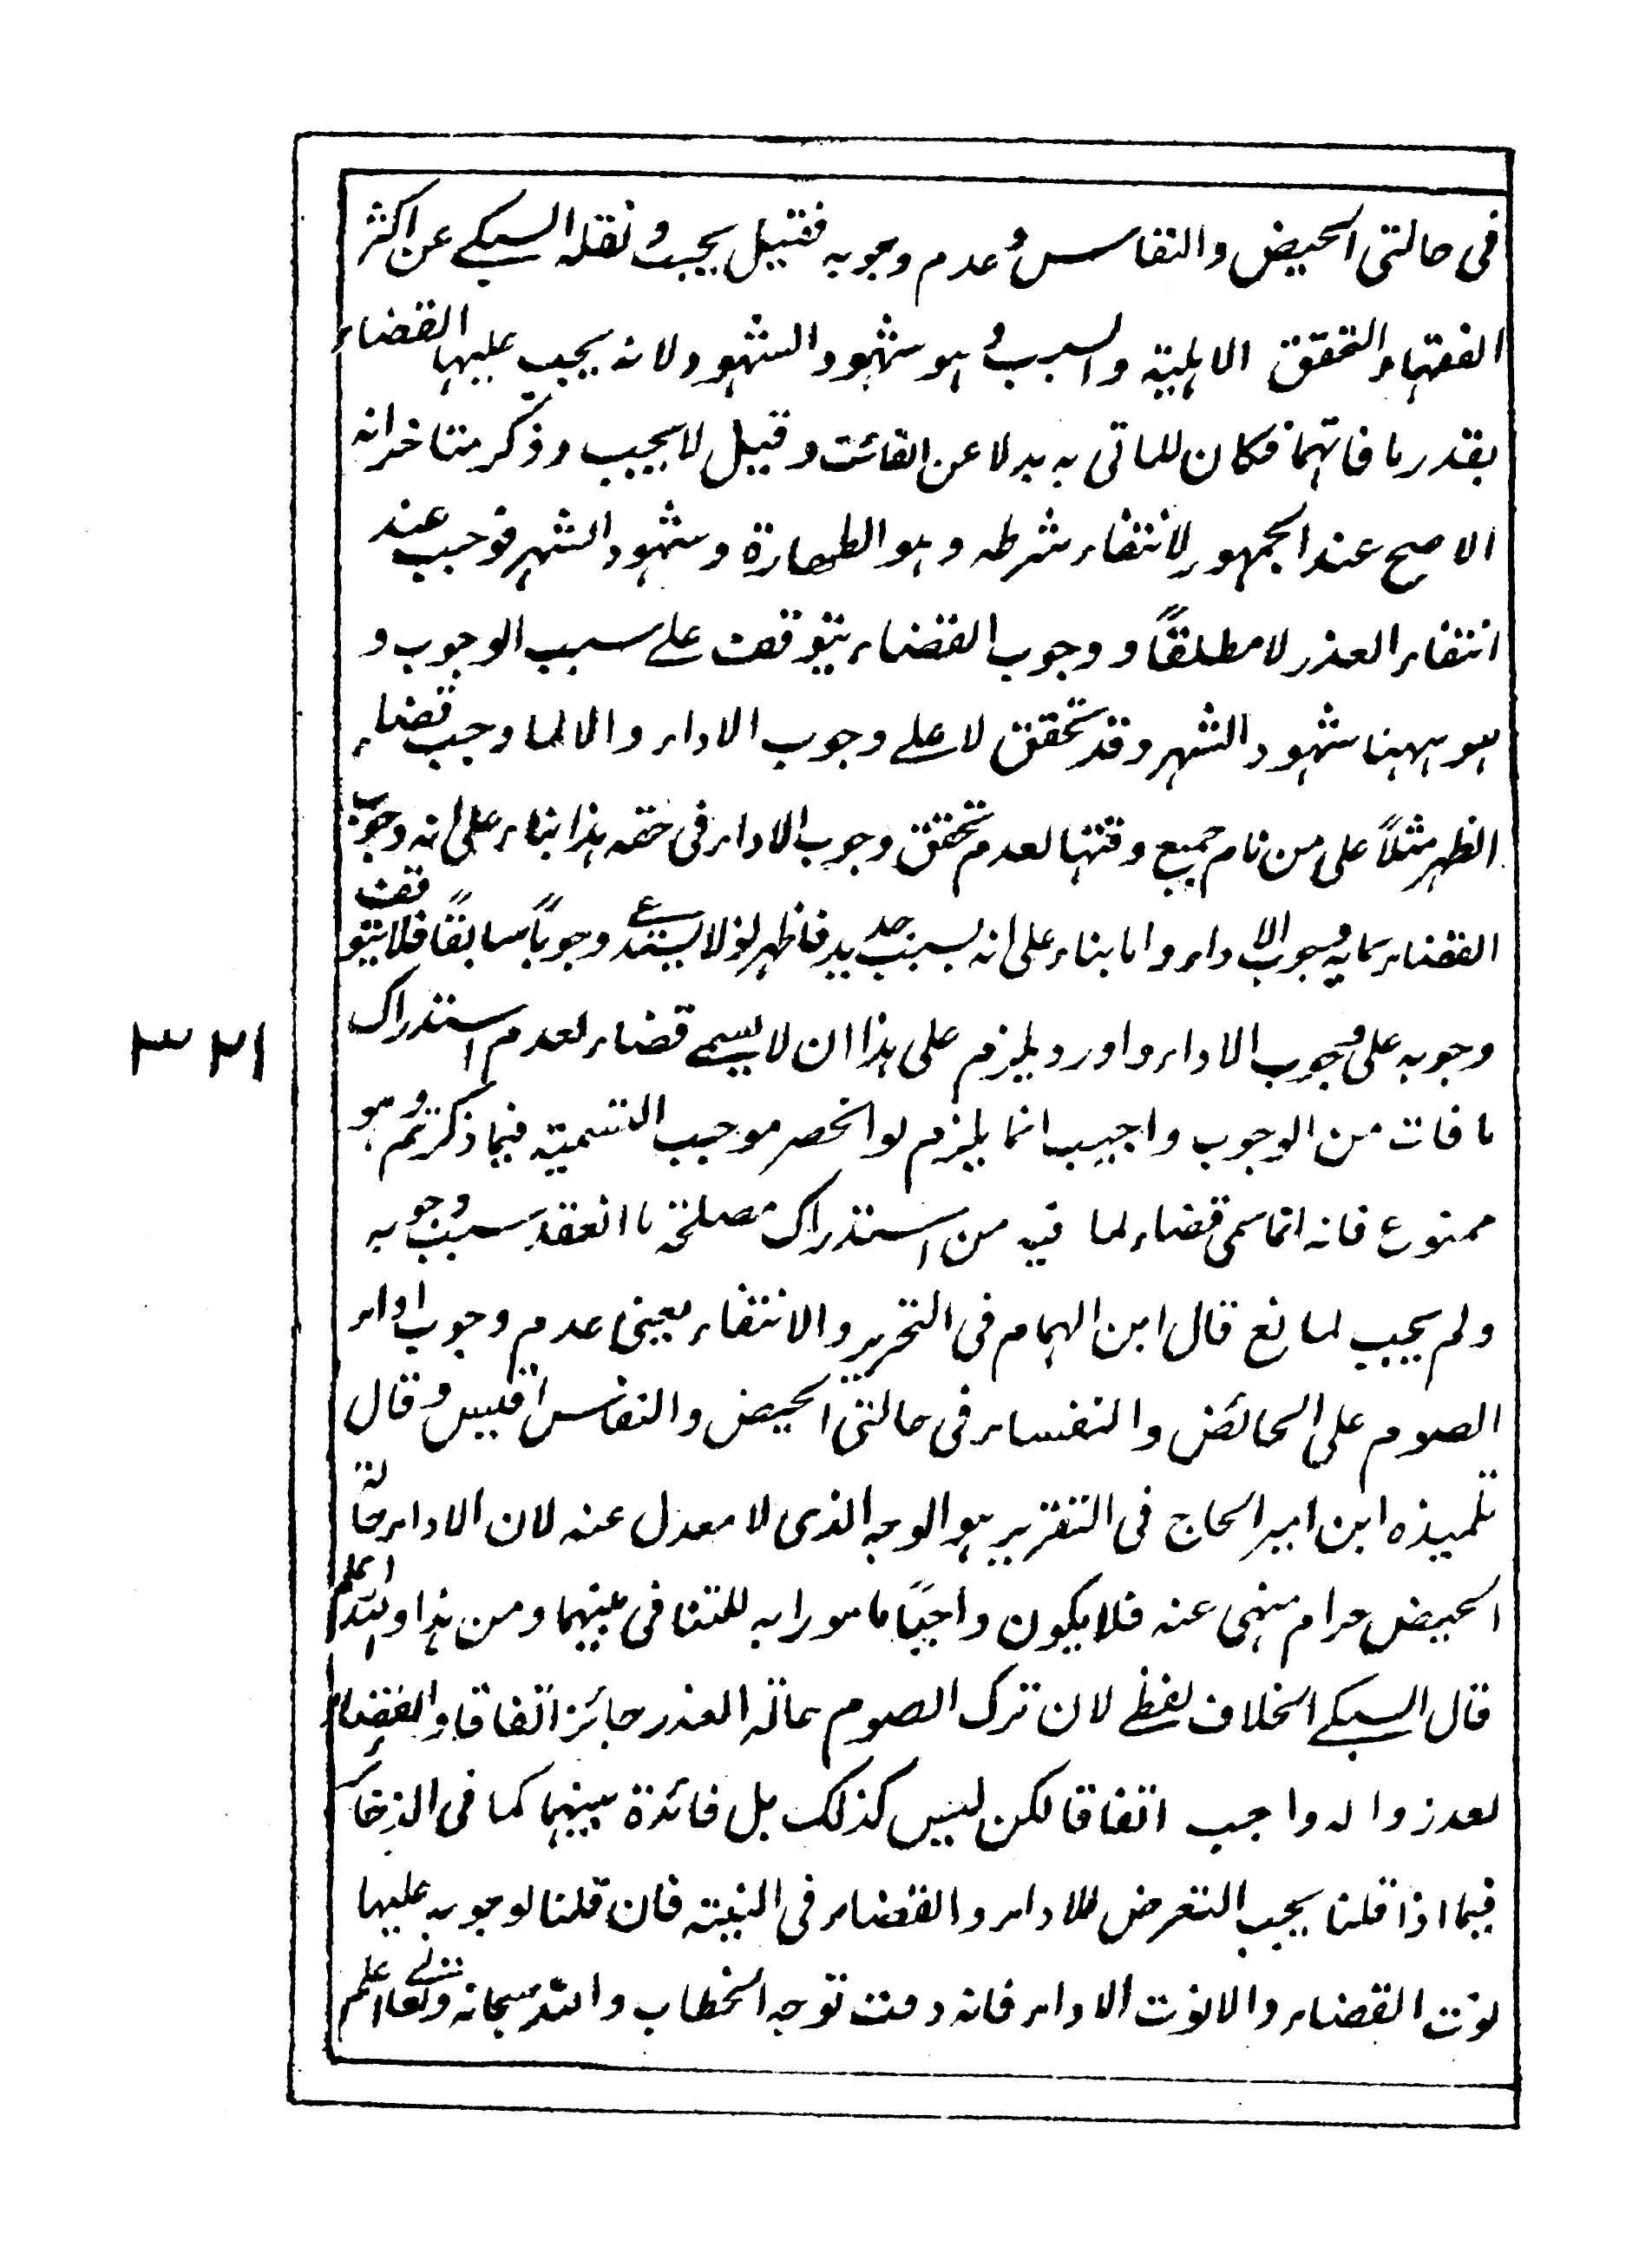 فى حالتى الحيض والنفاس وعدم وجوبه فقيل يجب ونقله السبكے عن اكثر
الفقهاء لتحقق الاهلية والسبب وهو شهود الشهود لانه يجب عليها القضاء
بقدر ما فاتهما فكان للماتى به بدلا عن الفائت وقيل لا يجب وذكر متاخرانه
الاصح عند الجمهور لانتفاء شرطه وهو الطهارة وشهود الشهر فوجب عند
انتفاء العذر لا مطلقاً و وجوب القضاء يتوقف علے سبب الوجوب و
هو ههنا شهود الشهر وقد تحقق لا علے وجوب الاداء والا لما وجب قضاء
الظهر مثلاً على من نام جميع وقتها لعدم تحقق وجوب الاداء فى حقه هذا بناء على انه وجوب
القضاء بما به وجوب الاداء واما بناء على انه بسبب جديد فاظهر لانه لا يستدعى وجوباً سابقاً فلا يتوقف
وجوبه على وجوب الاداء واورد يلزم على هذا ان لا يسمے قضاء لعدم استدراك
ما فات من الوجوب واجيب انما يلزم لو انحصر موجب التسمية فيما ذكرتم وهو
ممنوع فانه انما سمى قضاء لما فيه من استدراك مصلحة ما انعقد سبب وجوبه
ولم يجب لمانع قال ابن الهمام فى التحرير والانتفاء يعنى عدم وجوب اداء
الصوم على الحائض والنفساء فى حالتى الحيض والنفاس اقيس وقال
تلميذه ابن امير الحاج فى التقرير هو الوجه الذى لا معدل عنه لان الاداء حالة
الحيض حرام منهى عنه فلا يكون واجباً مامورا به للتنافى بينهما ومن هذا والله اعلم
قال السبكے الخلاف لفظے لان ترك الصوم حالة العذر جائز اتفاقا والقضاء
بعد زواله واجب اتفاقا لكن ليس كذلك بل فائدة بينهما كما فى الذخائر
فيما اذا قلنا يجب التعرض للاداء والقضاء فى النية فان قلنا لوجوبه عليها
نوت القضاء والا نوت الاداء فانه وقت توجه الخطاب والله سبحانه وتعالى اعلم
٣٢١